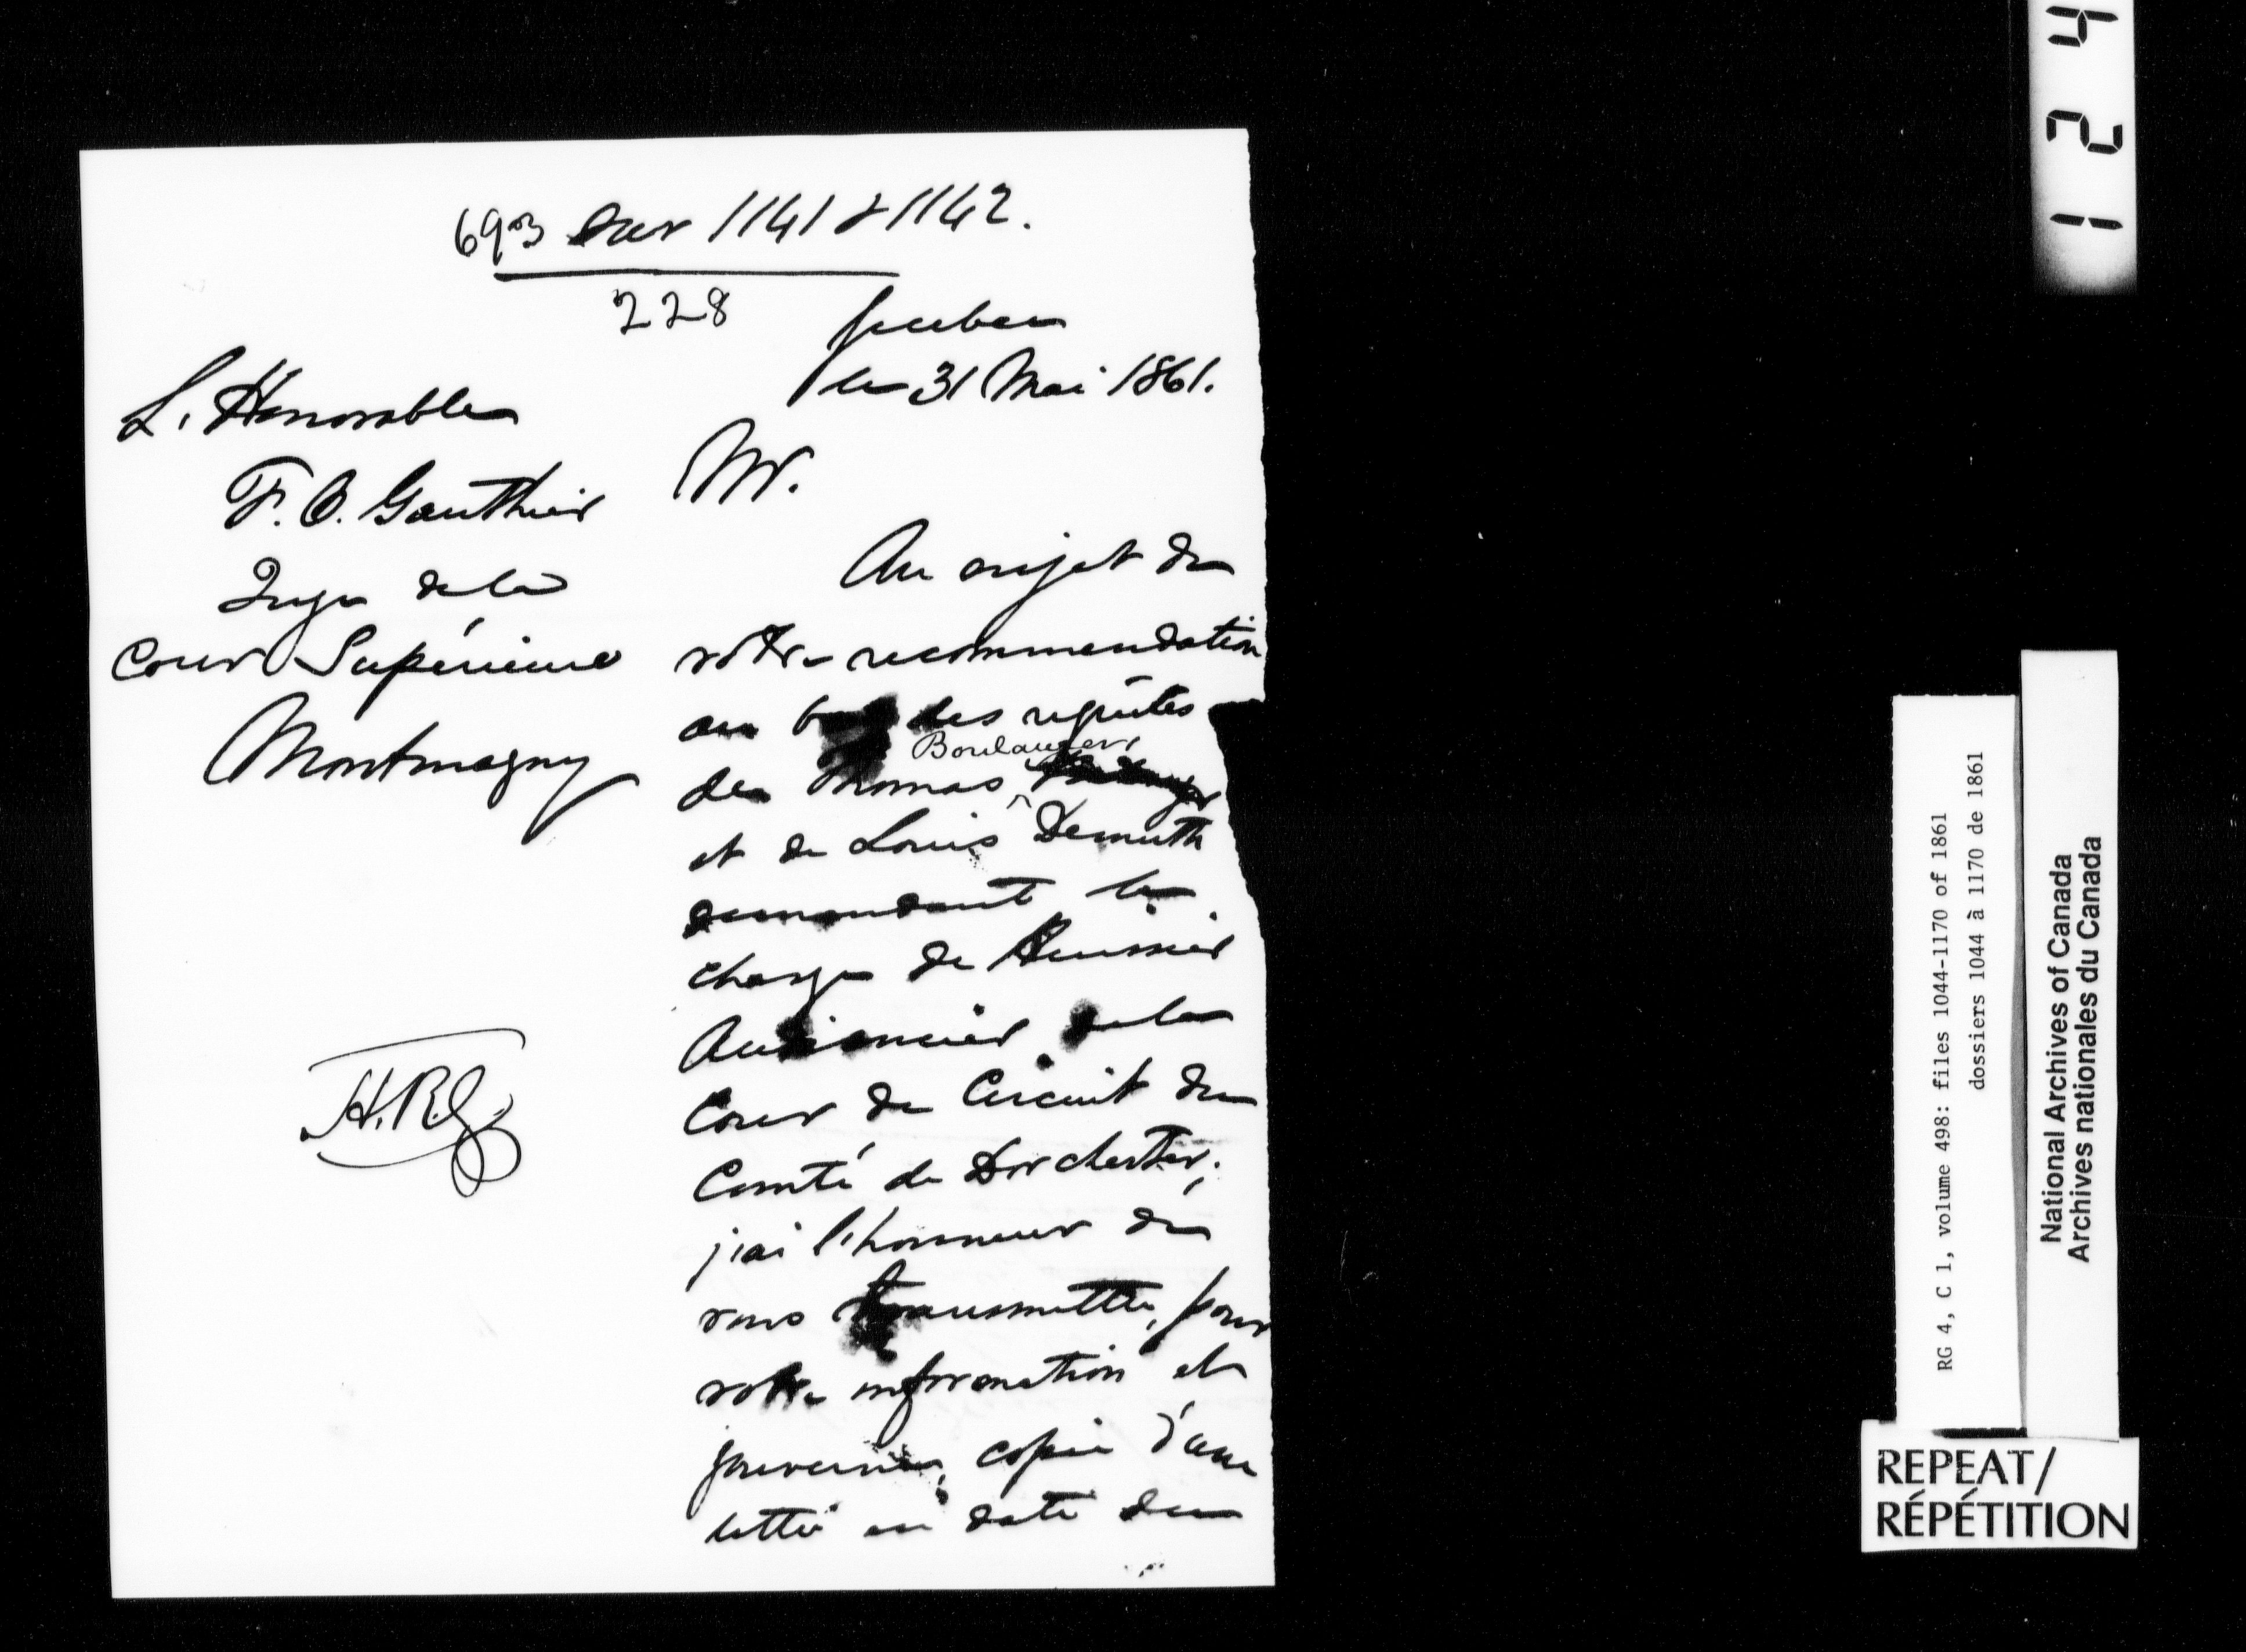 693 sur 1141 & 1142.
228
Quebec
le 31 Mai 1861.
L'Honorable
F. O. Gauthier
Juge de la
Cour Supérieure
Montmagny
Mr.
Au sujet de
votre recommendation
au bas des requêtes
de Thomas Boulanger,
et de Louis Demuth
demandant la
charge de Huissier
Audiencier de la
Cour de Circuit du
Comté de Dorchester,
j'ai l'honneur de
vous transmettre, pour
votre information et
gouverne, copie d'une
lettre en date du
H.R.
1 2 4
RG 4, C 1, volume 498: files 1044-1170 of 1861
dossiers 1044 à 1170 de 1861
National Archives of Canada
Archives nationales du Canada
REPEAT/
RÉPÉTITION